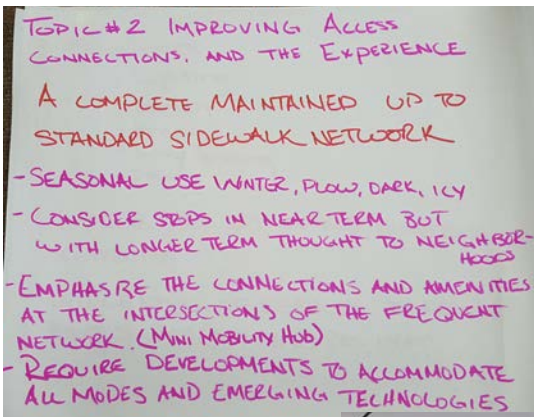 TOPIC #2 IMPROVING ACCESS
CONNECTIONS, AND THE EXPERIENCE
A COMPLETE MAINTAINED UP TO
STANDARD SIDEWALK NETWORK
- SEASONAL USE WINTER, PLOW, DARK, ICY
- CONSIDER STOPS IN NEAR TERM BUT
WITH LONGER TERM THOUGHT TO NEIGHBOR-
HOODS
- EMPHASIZE THE CONNECTIONS AND AMENITIES
AT THE INTERSECTIONS OF THE FREQUENT
NETWORK. (MINI MOBILITY HUB)
- REQUIRE DEVELOPMENTS TO ACCOMMODATE
ALL MODES AND EMERGING TECHNOLOGIES